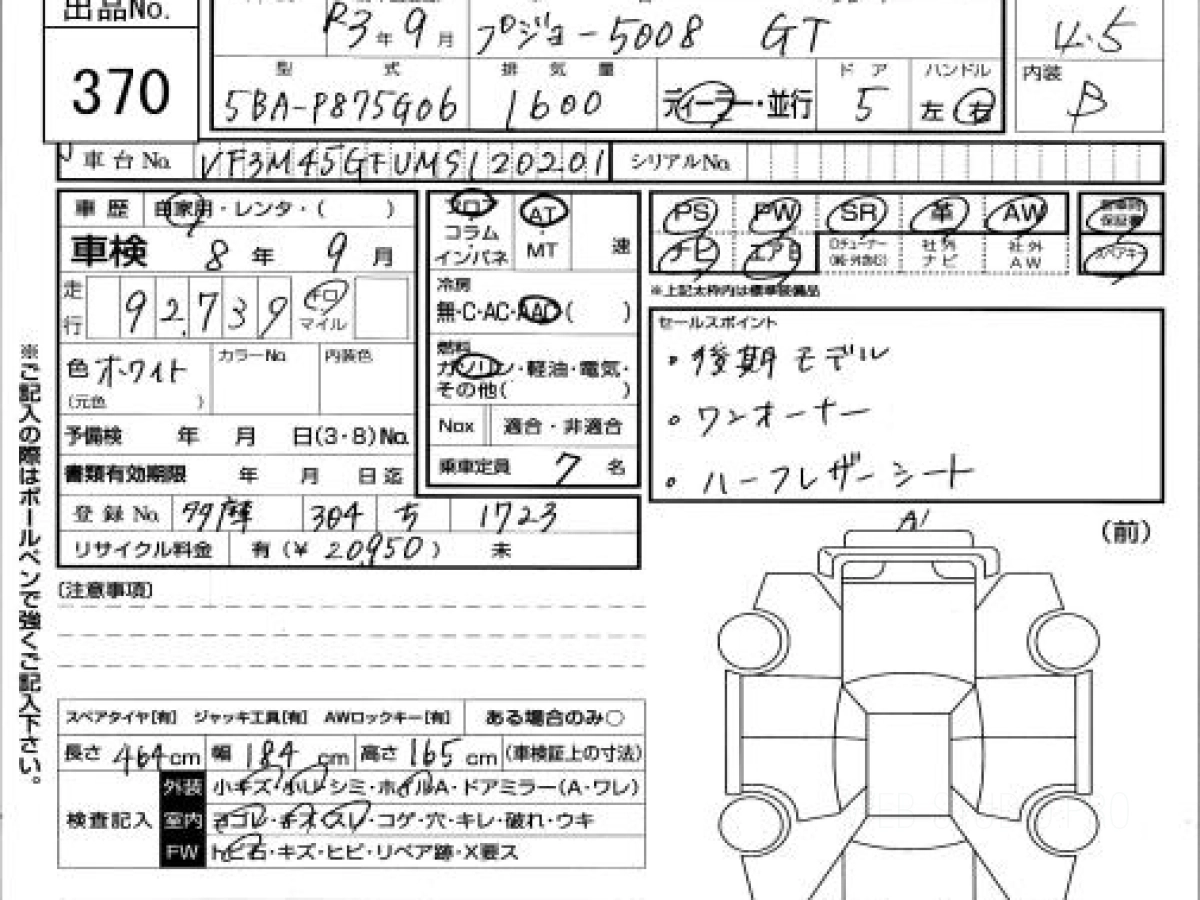 出品No.
370
R3年9月 プジョー5008 GT 4.5
型式 排気量 ドア ハンドル 内装
5BA-P875G06 1600 ディーラー・並行 5 左 右 B
車台No. VF3M45GFUMS120201 シリアルNo.
車歴 自家用・レンタ・( )
車検 8年 9月
走行 92,739 キロ マイル
色 ホワイト カラーNo. 内装色
(元色 )
予備検 年 月 日(3・8)No.
書類有効期限 年 月 日迄
登録No. 多摩 304 ち 1723
リサイクル料金 有(¥20,950) 未
フロア
コラム
インパネ
AT
MT
速
冷房
無・C・AC・AAC( )
燃料
ガソリン・軽油・電気・
その他( )
Nox 適合・非適合
乗車定員 7名
PS PW SR 革 AW 保証書
ナビ エアB 社外ナビ 社外AW スペアキー
※上記太枠内は標準装備品
セールスポイント
・後期モデル
・ワンオーナー
・ハーフレザーシート
A1
(前)
[注意事項]
スペアタイヤ[有] ジャッキ工具[有] AWロックキー[有] ある場合のみ○
長さ 464cm 幅 184cm 高さ 165cm (車検証上の寸法)
検査記入
外装 小キズ・小U・シミ・ホイルA・ドアミラー(A・ワレ)
室内 ヨゴレ・キズ・スレ・コゲ・穴・キレ・破れ・ウキ
FW トビ石・キズ・ヒビ・リペア跡・X要ス
※ご記入の際はボールペンで強くご記入下さい。